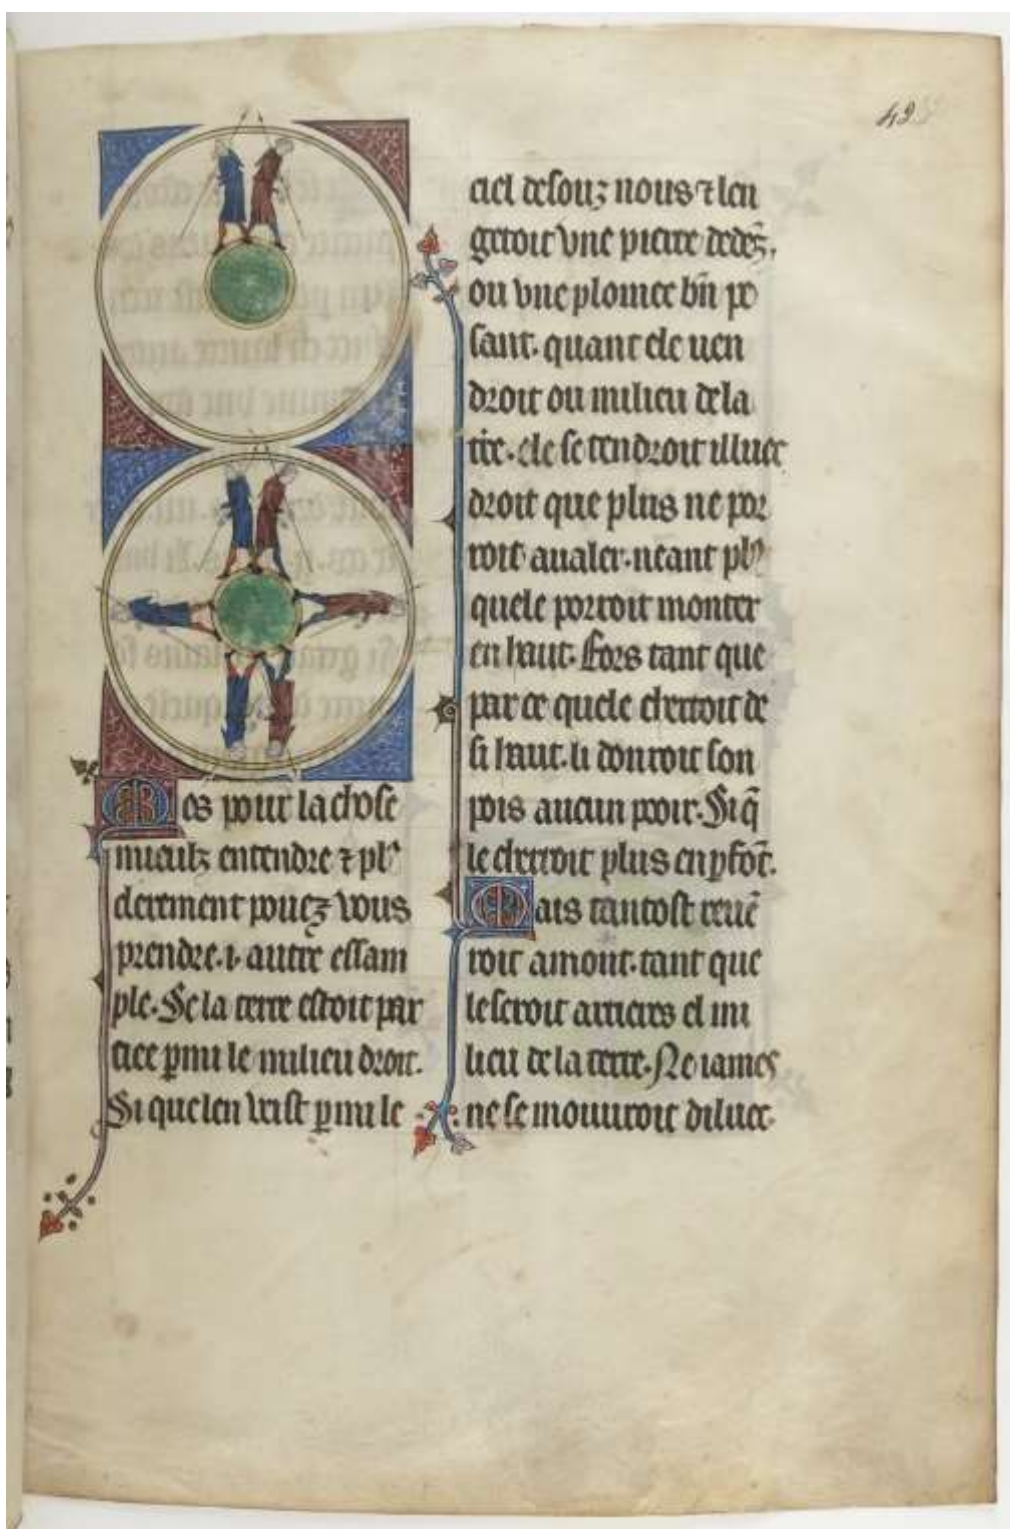 42
Mes pour la chose
mieulz entendre ⁊ plꝰ
clerement pouez vous
prendre .i. autre essam
ple. Se la terre estoit par
ciee ꝑmi le milieu droit.
Si que len veist ꝑmi le
ciel desouz nous ⁊ len
getoit vne pierre dedẽz.
ou vne plomee bñ pe
sant. quant ele uen
droit ou milieu de la
tr̃e. ele se tendroit illuec
droit que plus ne por
roit aualer. neant plꝰ
quele porroit monter
en haut. Fors tant que
par ce quele cherroit de
si haut. li donroit son
pois aucun pooir. Si q̃
le cherroit plus en ꝑfõt.
Mais tantost reuẽ
roit amont. tant que
le seroit arrieres el mi
lieu de la terre. Ne iames
ne se mouuroit diluec.